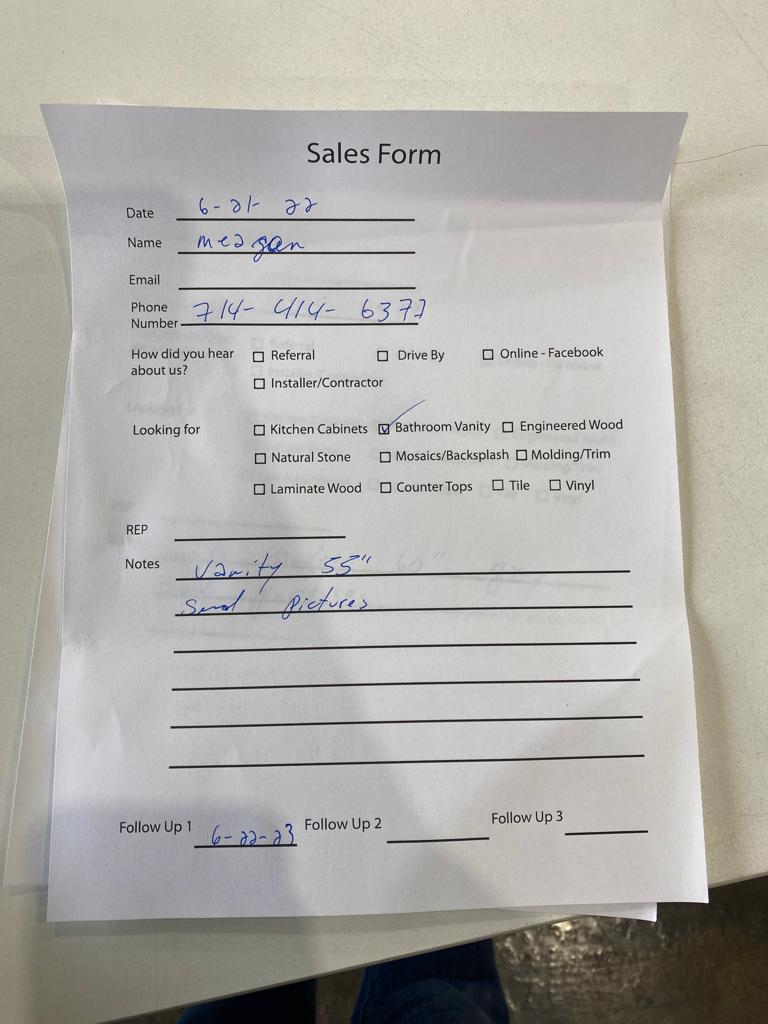 Sales Form
Date 6-21-22
Name meagan
Email
Phone
Number 714-414-6377
How did you hear about us? ☐ Referral ☐ Drive By ☐ Online - Facebook
☐ Installer/Contractor
Looking for ☐ Kitchen Cabinets ☑ Bathroom Vanity ☐ Engineered Wood
☐ Natural Stone ☐ Mosaics/Backsplash ☐ Molding/Trim
☐ Laminate Wood ☐ Counter Tops ☐ Tile ☐ Vinyl
REP
Notes Vanity 55"
Send pictures
Follow Up 1 6-22-23 Follow Up 2 Follow Up 3